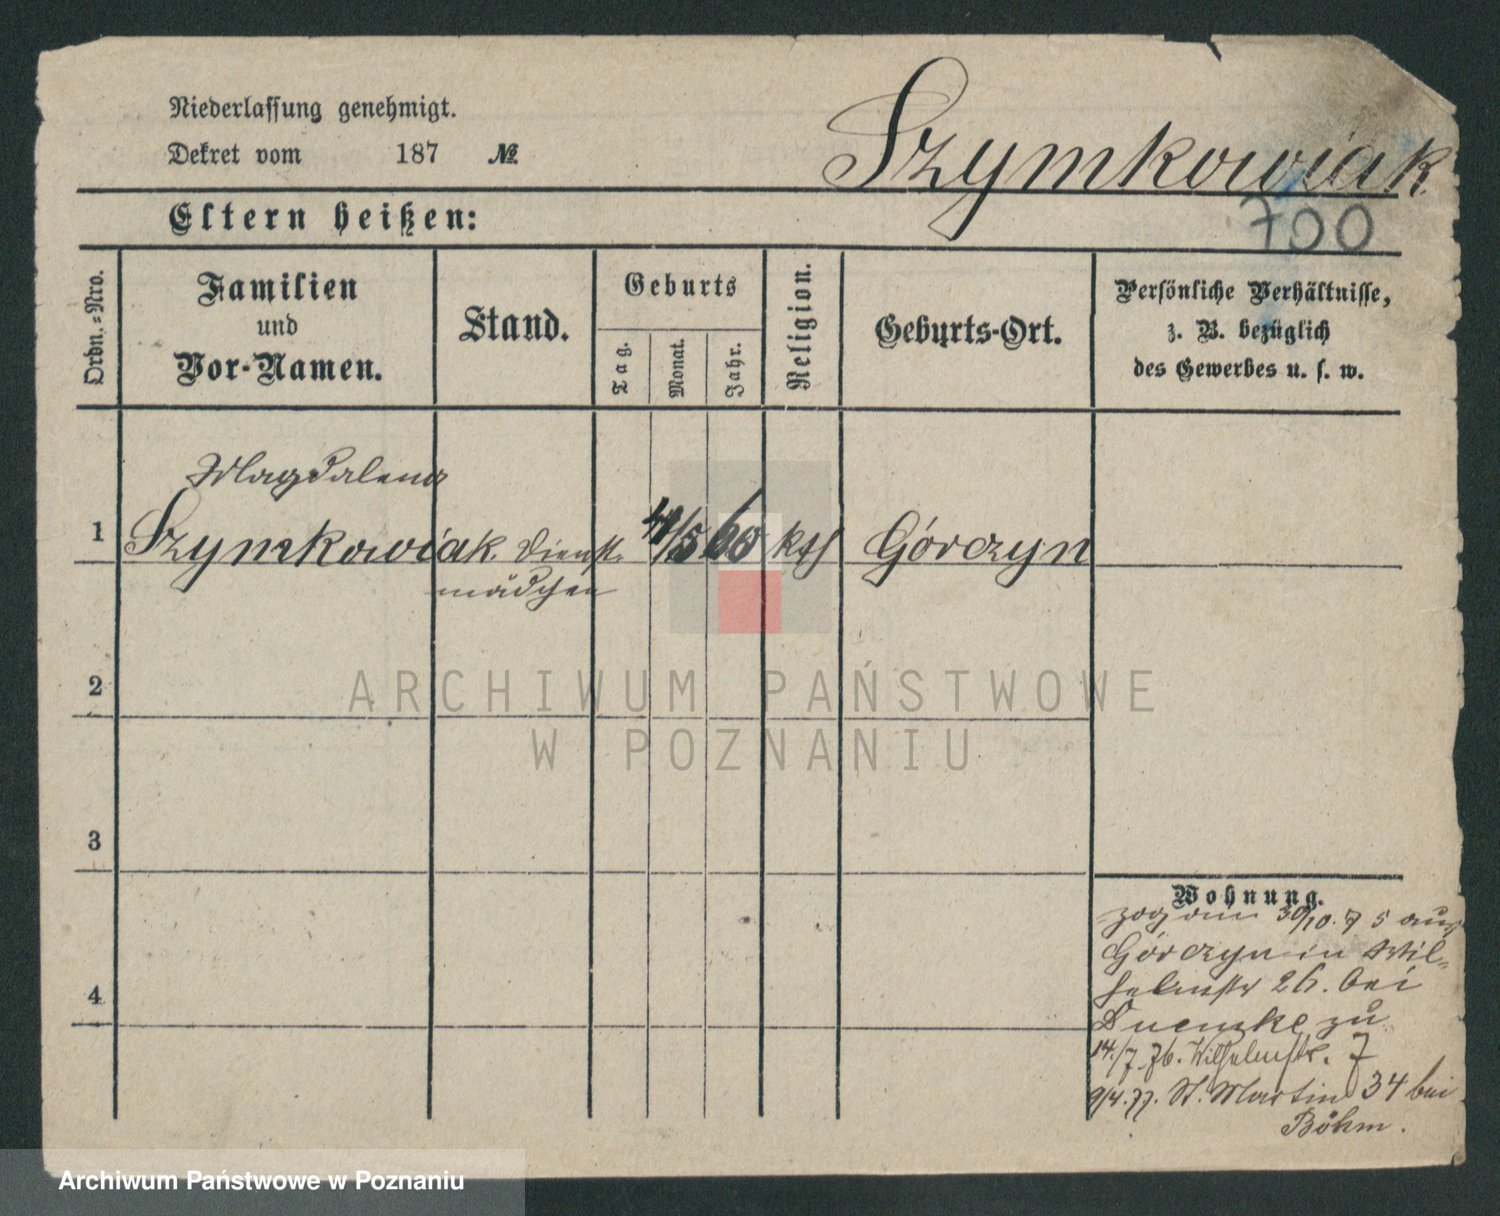 Niederlassung genehmigt.
Dekret vom 187 №
Szymkowiak
700
Eltern heißen:
Ordn.-Nro.
Familien
und
Vor-Namen.
Stand.
Geburts
Tag.
Monat.
Jahr.
Religion.
Geburts-Ort.
Persönliche Verhältnisse,
z. B. bezüglich
des Gewerbes u. s. w.
Magdalena
1 Szymkowiak. Dienst- /5 60 kth Górczyn
mädchen
2
3
4
Wohnung.
zog am 30/10. 75 aus
Górczyn in Wil-
helmstr 26. bei
zu
14./7. 76. Wilhelmstr. 7
9/4. 77. St. Martin 34 bei
Böhm.
ARCHIWUM PAŃSTWOWE
W POZNANIU
Archiwum Państwowe w Poznaniu